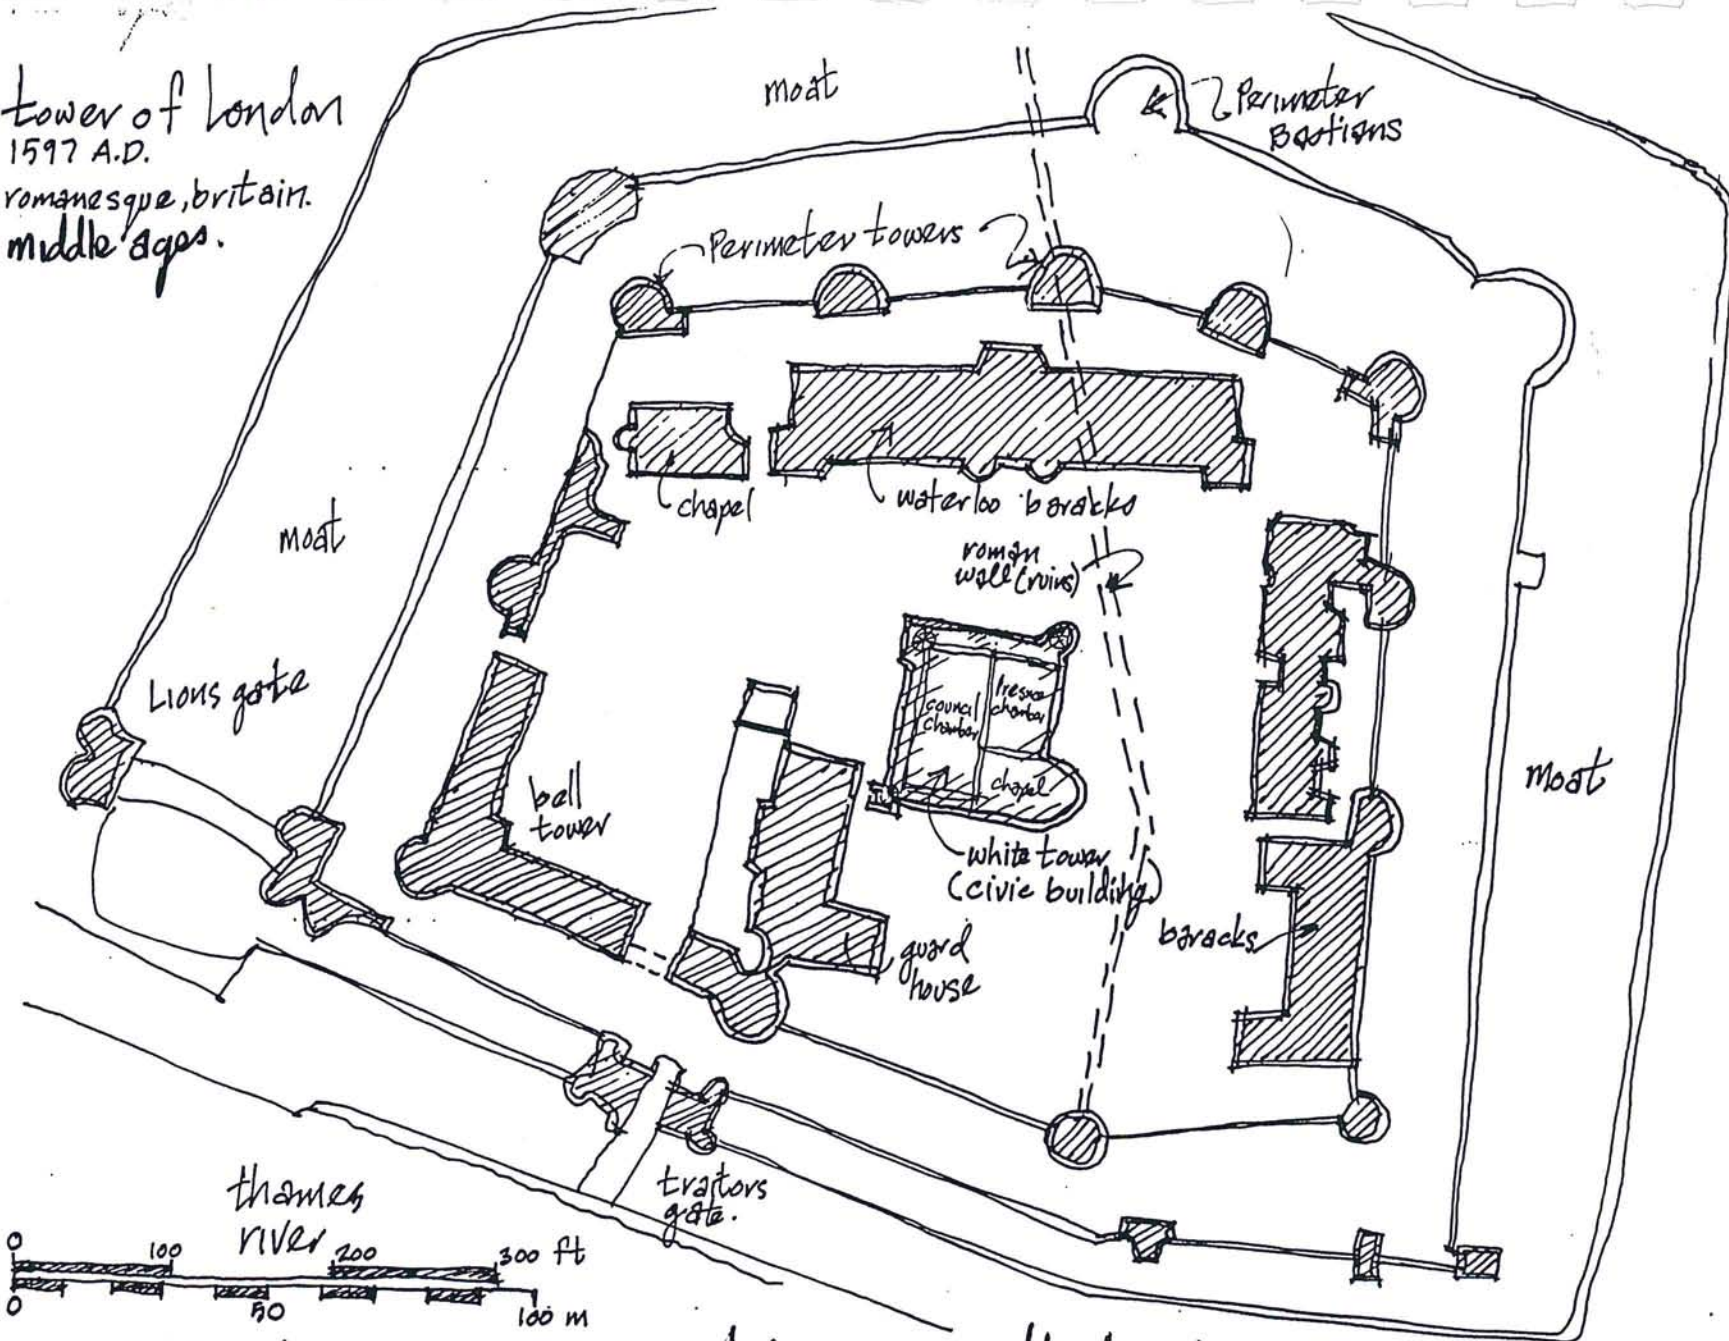 tower of london
1597 A.D.
romanesque, britain.
middle ages.
moat
Perimeter
Bastians
Perimeter towers
chapel
waterloo baracks
moat
roman
wall (ruins)
Lions gate
council
chamber
chamber
chapel
moat
bell
tower
white tower
(civic building)
baracks
guard
house
traitors
gate.
thames
river
0 100 200 300 ft
0 50 100 m